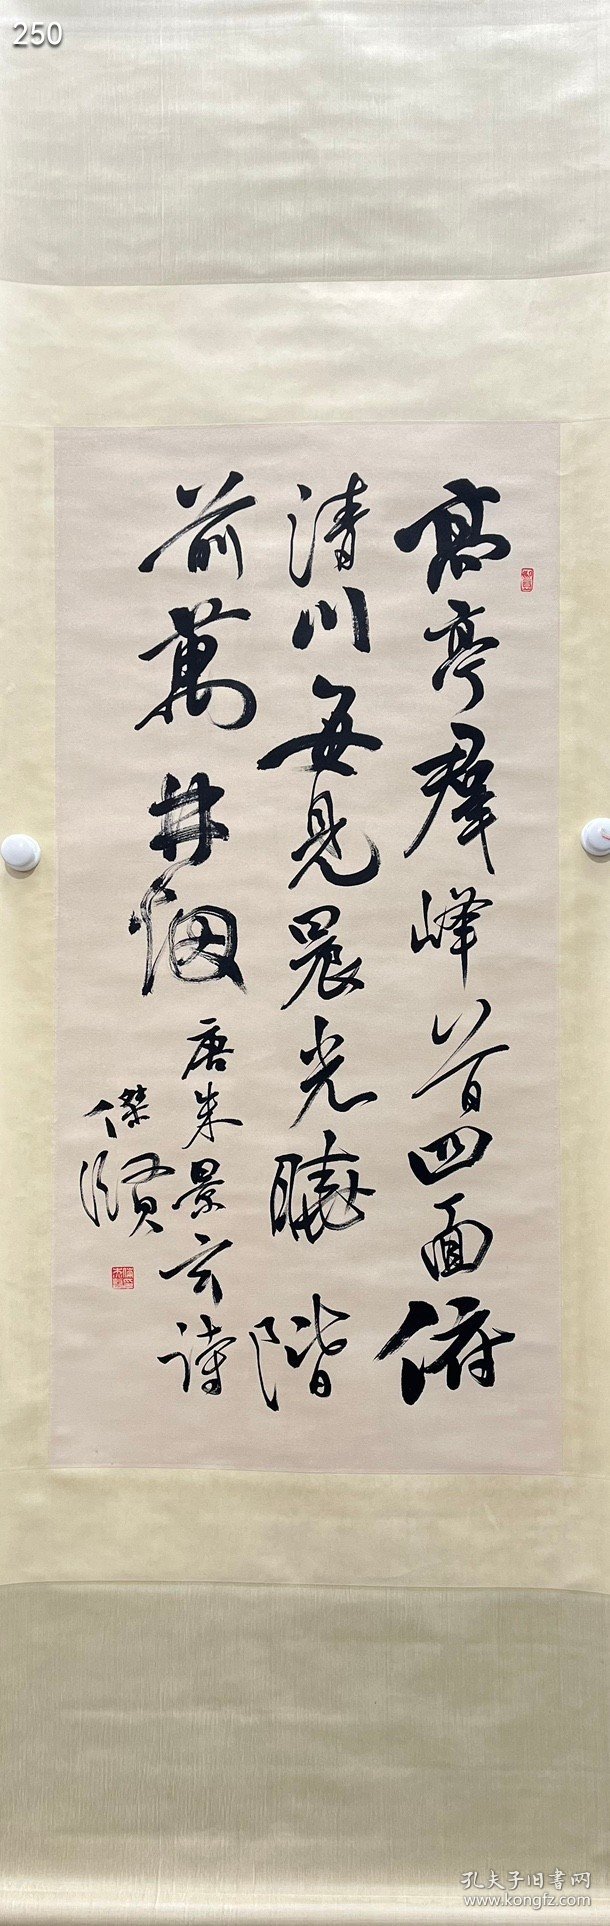 250
高亭羣峰首四面俯
清川每見晨光曉階
前萬井烟
唐朱景玄詩
傑賢
孔夫子旧书网
www.kongfz.com